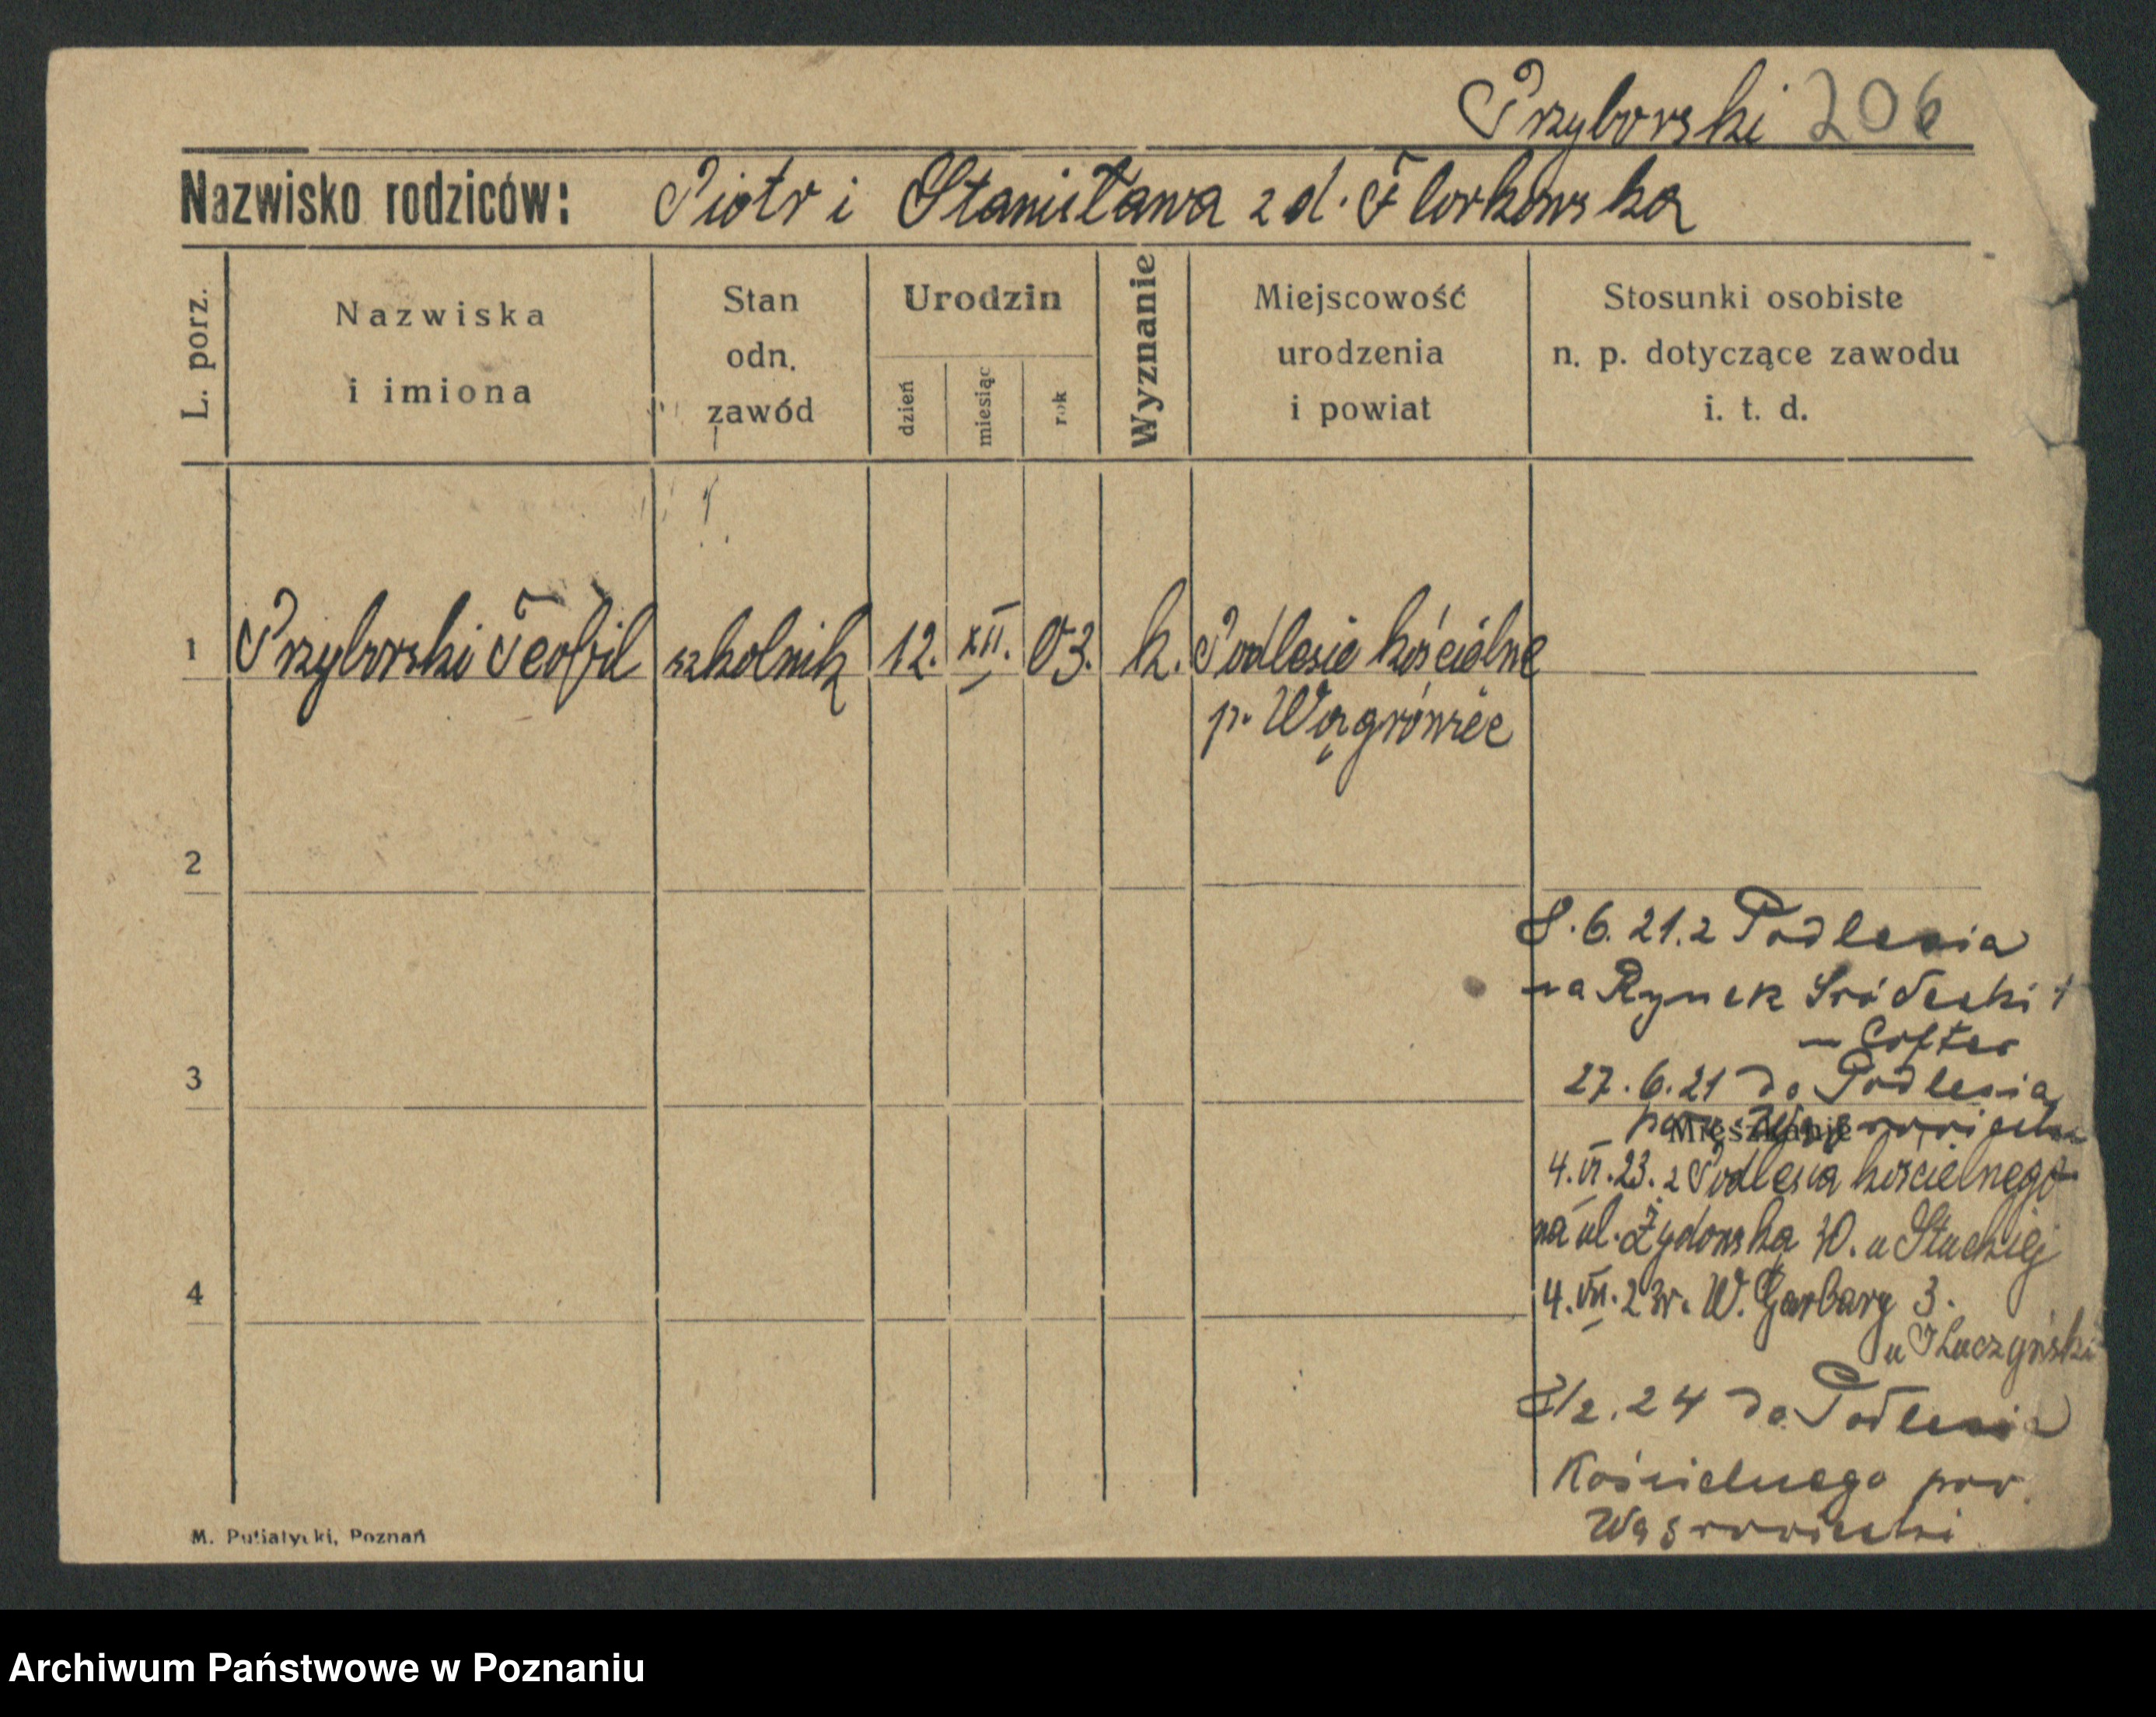 Przyborski 206
Nazwisko rodziców: Piotr i Stanisława z d. Florkowska
L. porz.
Nazwiska
i imiona
Stan
odn.
zawód
Urodzin
dzień
miesiąc
rok
Wyznanie
Miejscowość
urodzenia
i powiat
Stosunki osobiste
n. p. dotyczące zawodu
i. t. d.
1 Przyborski Teofil szkolnik 12. XII. 03. k. Podlesie kościelne
p. Wągrówiec
2
8.6.21. z Podlesia
na Rynek Śródecki 1
27.6.21 do Podlesia
3
Mieszkanie
4.VI.23. z Podlesia kościelnego
na ul. Żydowską 30. u
4.VII.23r. W. Garbary 3.
4
u
8/2.24 do Podlesia
Kościelnego pow.
Wągrowiecki
M. Putiatycki, Poznań
Archiwum Państwowe w Poznaniu